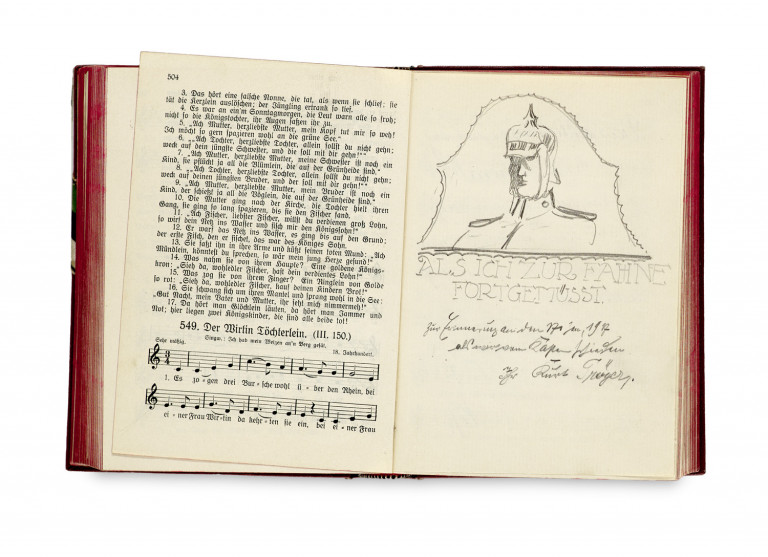 504
3. Das hört eine falsche Nonne, die tat, als wenn sie schlief; sie
tät die Kerzlein auslöschen; der Jüngling ertrank so tief.
4. Es war an ein'm Sonntagmorgen, die Leut warn alle so froh;
nicht so die Königstochter, ihr Augen saßen ihr zu.
5. „Ach Mutter, herzliebste Mutter, mein Kopf tut mir so weh!
Ich möcht so gern spazieren wohl an die grüne See.“
6. „„Ach Tochter, herzliebste Tochter, allein sollst du nicht gehn;
weck auf dein jüngste Schwester, und die soll mit dir gehn!““
7. „Ach Mutter, herzliebste Mutter, meine Schwester ist noch ein
Kind, sie pflückt ja all die Blümlein, die auf der Grünheide sind.“
8. „„Ach Tochter, herzliebste Tochter, allein sollst du nicht gehn;
weck auf deinen jüngsten Bruder, und der soll mit dir gehn!““
9. „Ach Mutter, herzliebste Mutter, mein Bruder ist noch ein
Kind, der schießt ja all die Vöglein, die auf der Grünheide sind.“
10. Die Mutter ging nach der Kirche, die Tochter hielt ihren
Gang, sie ging so lang spazieren, bis sie den Fischer fand.
11. „Ach Fischer, liebster Fischer, willst du verdienen groß Lohn,
so wirf dein Netz ins Wasser und fisch mir den Königssohn!“
12. Er warf das Netz ins Wasser, es ging bis auf den Grund;
der erste Fisch, den er fischet, das war des Königes Sohn.
13. Sie faßt ihn in ihre Arme und küßt seinen toten Mund: „Ach
Mündlein, könntest du sprechen, so wär mein jung Herze gesund!“
14. Was nahm sie von ihrem Haupte? Eine goldene Königs-
kron: „Sieh da, wohledler Fischer, hast dein verdientes Lohn!“
15. Was zog sie von ihrem Finger? Ein Ringlein von Golde
so rot: „Sieh da, wohledler Fischer, kauf deinen Kindern Brot!“
16. Sie schwang sich um ihren Mantel und sprang wohl in die See:
„Gut Nacht, mein Vater und Mutter, ihr seht mich nimmermeh!“
17. Da hört man Glöcklein läuten, da hört man Jammer und
Not; hier liegen zwei Königskinder, die sind alle beide tot!
549. Der Wirtin Töchterlein. (III. 150.)
Sehr mäßig.
Singw.: Ich hab mein Weizen an'n Berg gesät.
18. Jahrhundert.
1. Es zo-gen drei Bur-sche wohl ü-ber den Rhein, bei
ei-ner Frau Wir-tin da kehr-ten sie ein, bei ei-ner Frau
ALS ICH ZUR FAHNE
FORTGEMÜSST.
Zur Erinnerung an den 17. Jan. 1917
Ihr Kurt